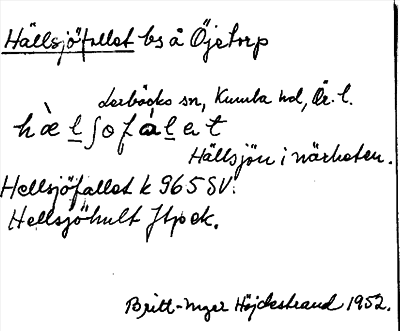 Hällsjöfallet bs å Öjetorp
Lerbäcks sn, Kumla hd, Ör. l.
hὰelʃofàlet
Hällsjön i närheten.
Hellsjöfallet k 965 SV.
Hellsjöhult Jfpek.
Britt-Inger Höjdestrand 1952.